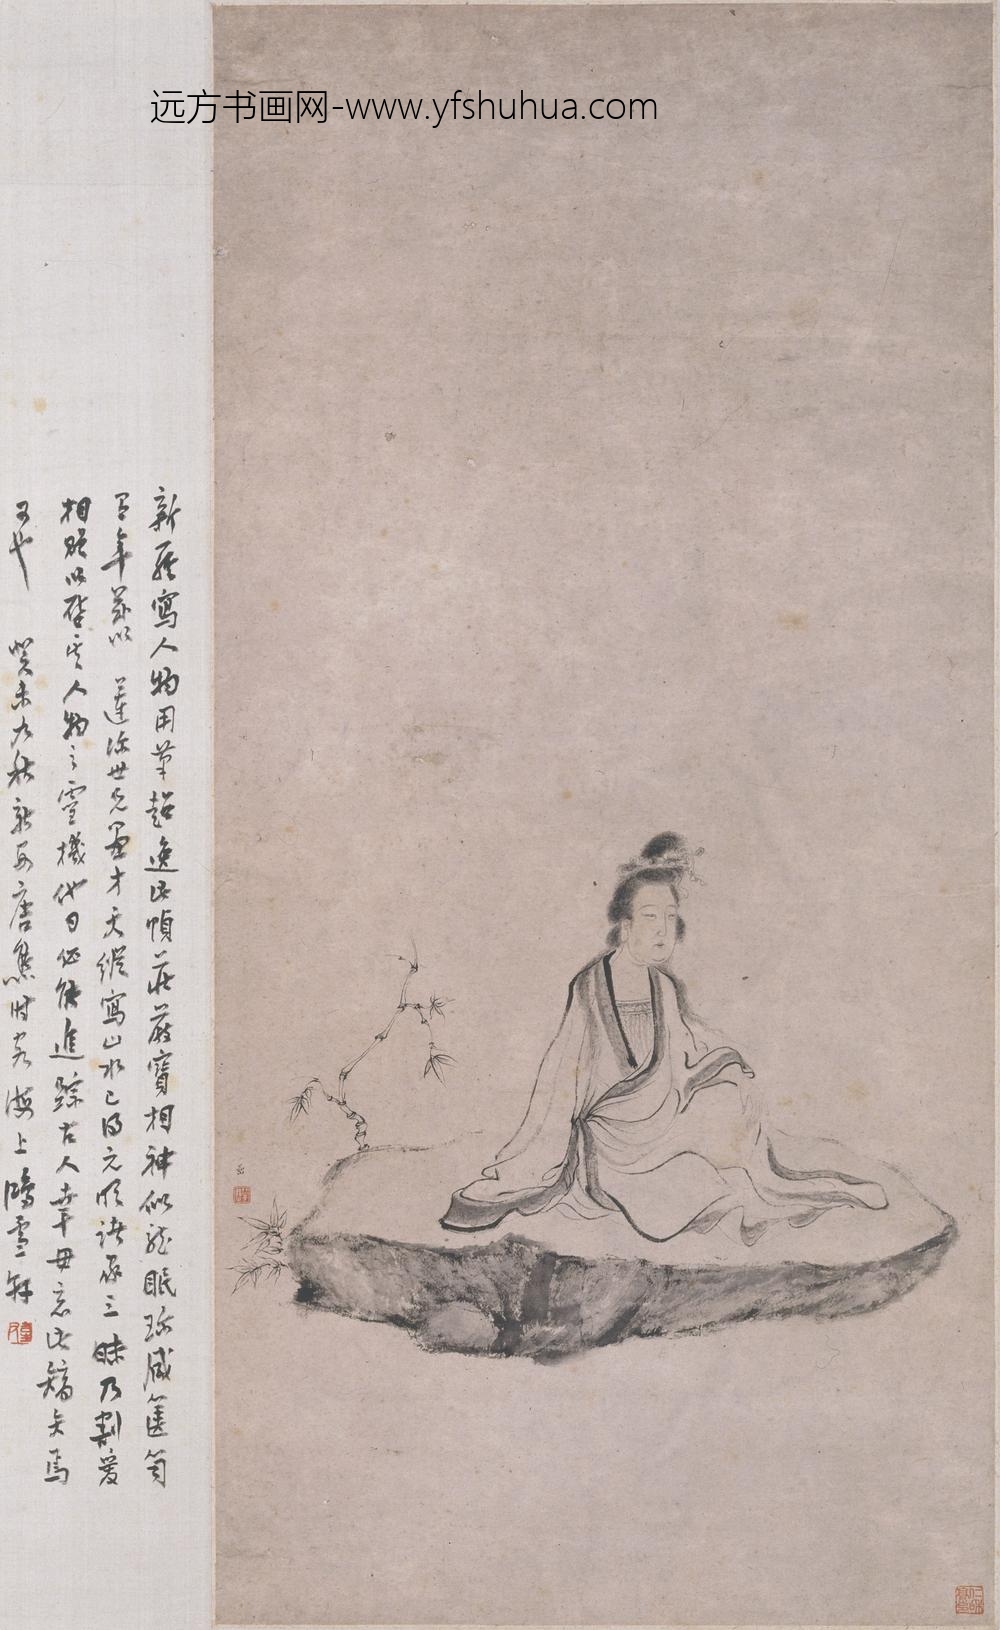 远方书画网-www.yfshuhua.com
新羅寫人物用筆超逸此幀莊嚴寶相神似龍眠珍臧篋笥
有年茲以 蓮世兄畫才天縱寫山水已得元明諸家三昧乃割愛
相贈以啓其人物之靈機他日必能追踪古人幸毋忘此矢焉
可也 癸未九秋新安唐熊時客海上鴻雪軒